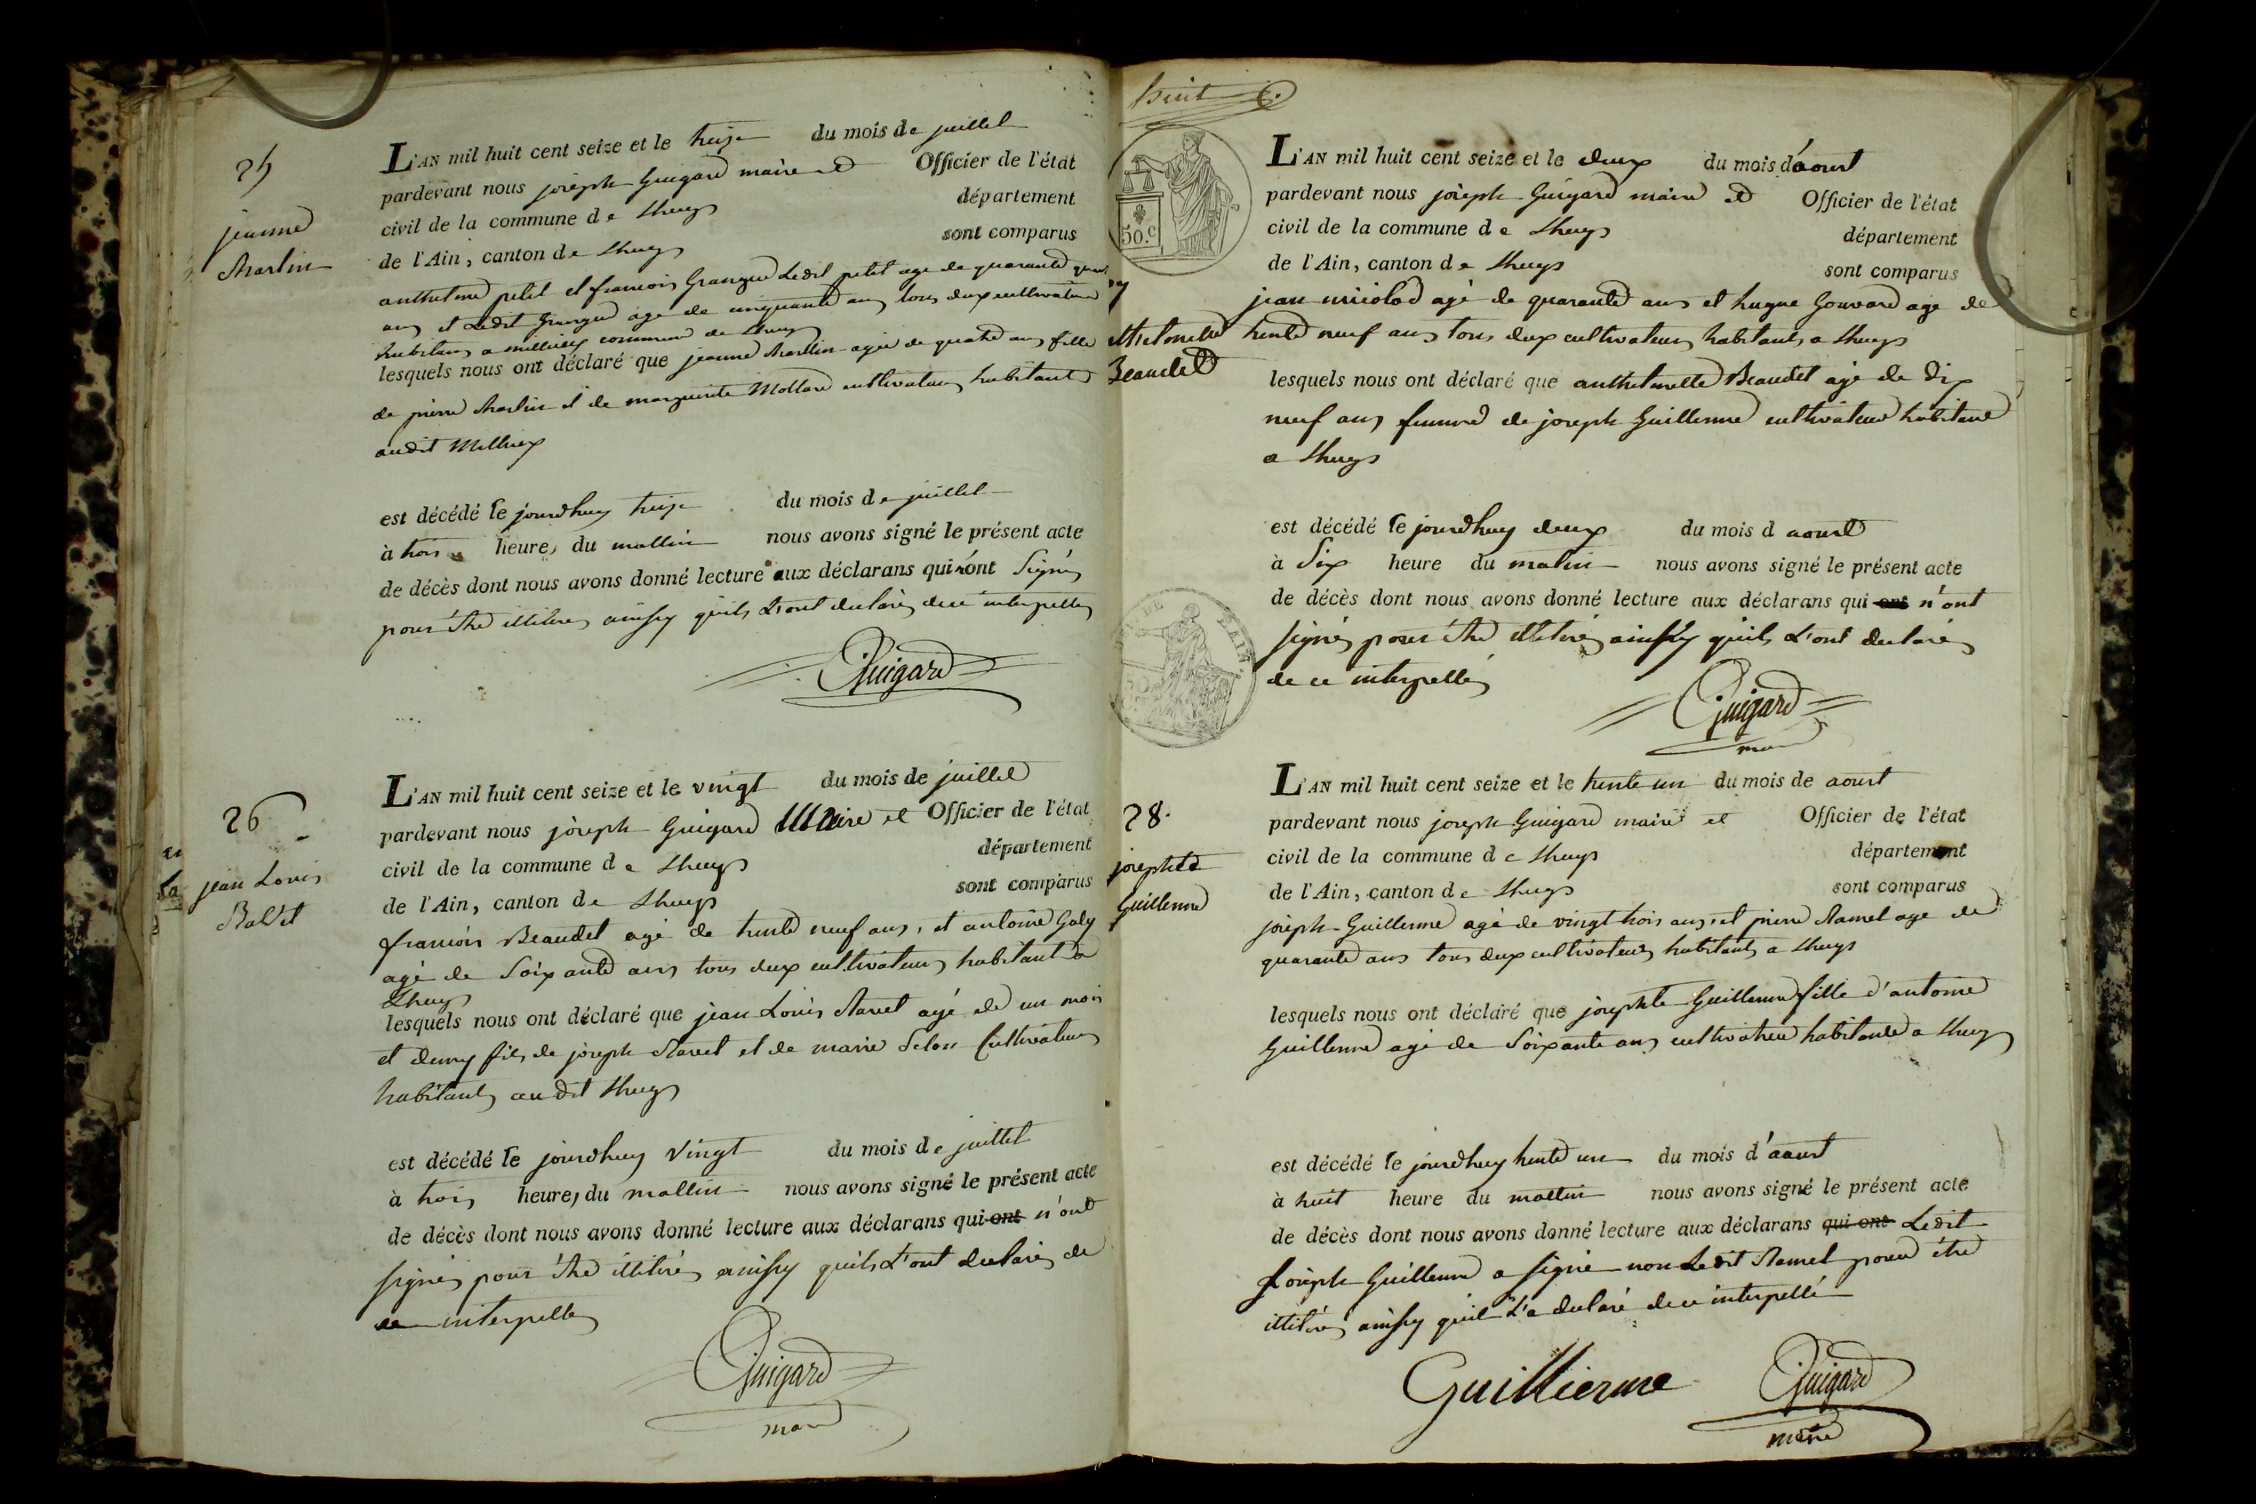 25
jeanne
Martin
L'AN mil huit cent seize et le treize du mois de juillet
pardevant nous joseph Guigard maire et Officier de l'état
civil de la commune de Lhuys département
de l'Ain, canton de Lhuys sont comparus
anthelme petit et francois Grangeu Ledit petit age de quarante
ans et Ledit Grangeu age de cinquante ans tous deux cultivateurs
habitans a millieux commune de Lhuys
lesquels nous ont déclaré que jeanne Martin agée de quatre ans fille
de pierre Martin et de marguerite Mollard cultivateurs habitants
audit Millieux
est décédé le jourdhuy treize du mois de juillet
à trois heures du mattin nous avons signé le présent acte
de décès dont nous avons donné lecture aux déclarans qui n'ont Signés
pour être illitiré ainssy quils L'ont declarés de ce interpellés
Guigard
26
jean Louis
L'AN mil huit cent seize et le vingt du mois de juillet
pardevant nous joseph Guigard Maire et Officier de l'état
civil de la commune de Lhuys département
de l'Ain, canton de Lhuys sont comparus
francois Beaudet agé de trente neuf ans, et antoine Galy
agé de Soixante ans tous deux cultivateurs habitant a
Lhuys
lesquels nous ont déclaré que jean Louis agé de un mois
et demy fils de joseph et de marie Cultivateurs
habitants audit Lhuys
est décédé le jourdhuy vingt du mois de juillet
à trois heures du mattin nous avons signé le présent acte
de décès dont nous avons donné lecture aux déclarans qui ont n'ont
signés pour être illitiré ainssy quils L'ont declarés de
ce interpellés
Guigard
maire
huit
50.c
Anthelmette
Beaudet
L'AN mil huit cent seize et le deux du mois d'aoust
pardevant nous joseph Guigard maire et Officier de l'état
civil de la commune de Lhuys département
de l'Ain, canton de Lhuys sont comparus
jean agé de quarante ans et hugue Gonvard age de
trente neuf ans tous deux cultivateurs habitants a Lhuys
lesquels nous ont déclaré que anthelmette Beaudet agé de dix
neuf ans femme de joseph Guillerme cultivateur habitant
a Lhuys
est décédé le jourdhuy deux du mois d aoust
à Six heure du matin nous avons signé le présent acte
de décès dont nous avons donné lecture aux déclarans qui ont n'ont
signés pour être illitiré ainssy quils L'ont declarés
de ce interpellés
Guigard
maire
28.
josephte
Guillerme
L'AN mil huit cent seize et le trente un du mois de aoust
pardevant nous joseph Guigard maire et Officier de l'état
civil de la commune de Lhuys département
de l'Ain, canton de Lhuys sont comparus
joseph Guillerme agé de vingt trois ans, et pierre Ramel age de
quarante ans tous deux cultivateurs habitants a Lhuys
lesquels nous ont déclaré que josephte Guillerme fille d'antoine
Guillerme agé de Soixante ans cultivatrice habitante a Lhuys
est décédé le jourdhuy trente un du mois d'aoust
à huit heure du mattin nous avons signé le présent acte
de décès dont nous avons donné lecture aux déclarans qui ont Ledit
Joseph Guillerme a signé non Ledit Ramel pour être
illitiré ainssy quil L'a declaré de ce interpellé
Guillierme
Guigard
maire